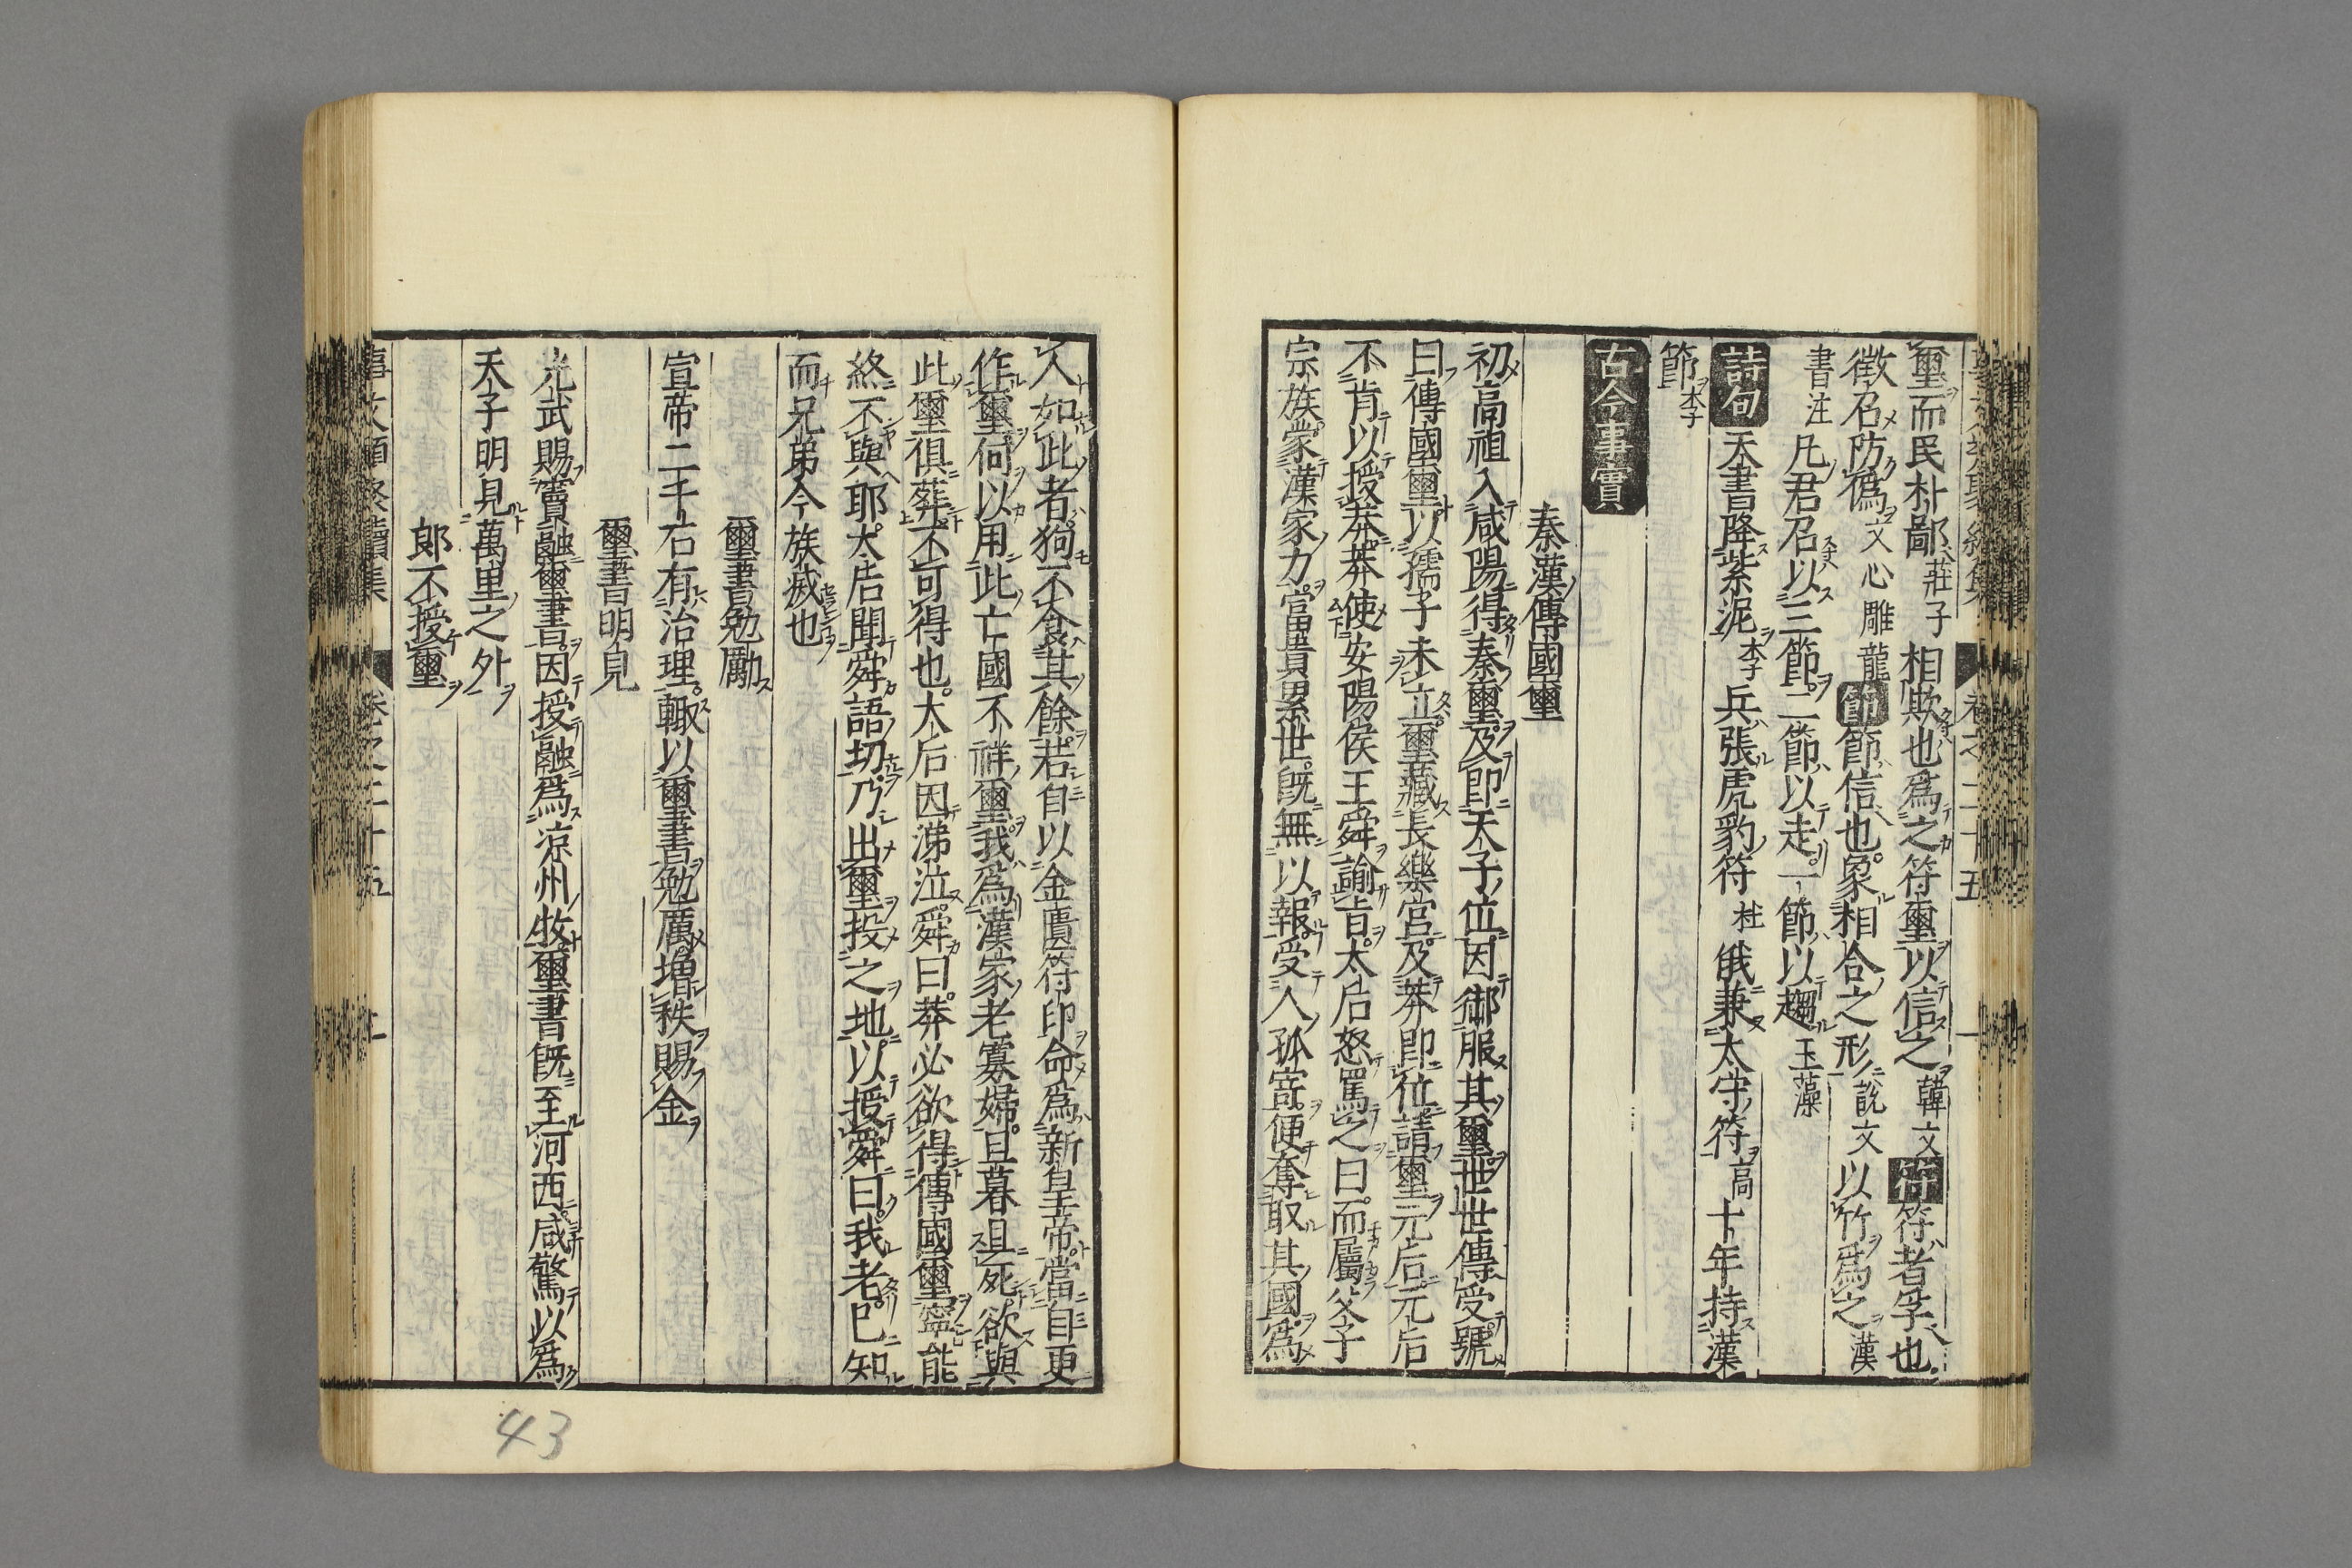 璽而民朴鄙莊子相欺也爲之符璽以信之韓文符符者孚也
徵召防僞文心雕龍節節信也象相合之形說文以竹爲之漢
書注凡君召以三節二節以走一節以趨玉藻
詩句天書降紫泥李兵張虎豹符杜俄兼太守符高十年持漢
節李
古今事實
秦漢傳國璽
初高祖入咸陽得秦璽及即天子位因御服其璽世世傳受號
曰傳國璽以孺子未立璽藏長樂宮及莽即位請璽元后元后
不肯以授莽莽使安陽侯王舜諭旨太后怒罵之曰而屬父子
宗族蒙漢家力富貴累世既無以報受人孤寄便奪取其國爲
人如此者狗不食其餘若自以金匱符印命爲新皇帝當自更
作璽何以用此亡國不祥璽我爲漢家老寡婦旦暮且死欲與
此璽俱葬不可得也太后因涕泣舜曰莽必欲得傳國璽寧能
終不與耶太后聞舜語切乃出璽投之地以授舜曰我老已知
而兄弟今族滅也
璽書勉勵
宣帝二千石有治理輙以璽書勉厲增秩賜金
璽書明見
光武賜竇融璽書因授融爲凉州牧璽書既至河西咸驚以爲
天子明見萬里之外
郎不授璽
事文類聚續集
卷之二十五
43